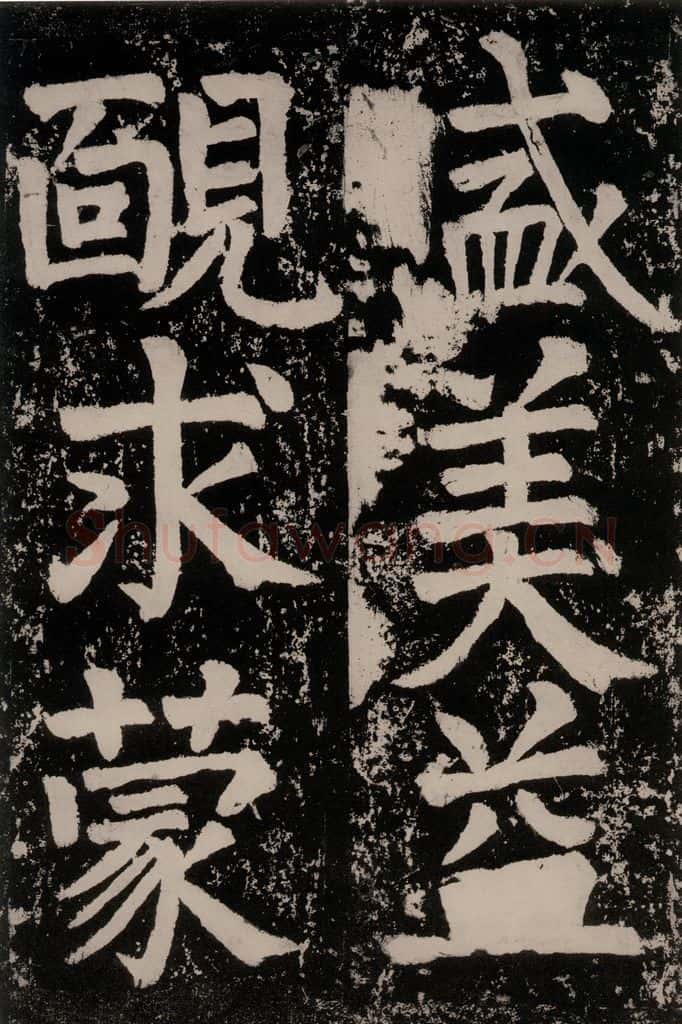 盛美益
靦求蒙
Shufawang.CN